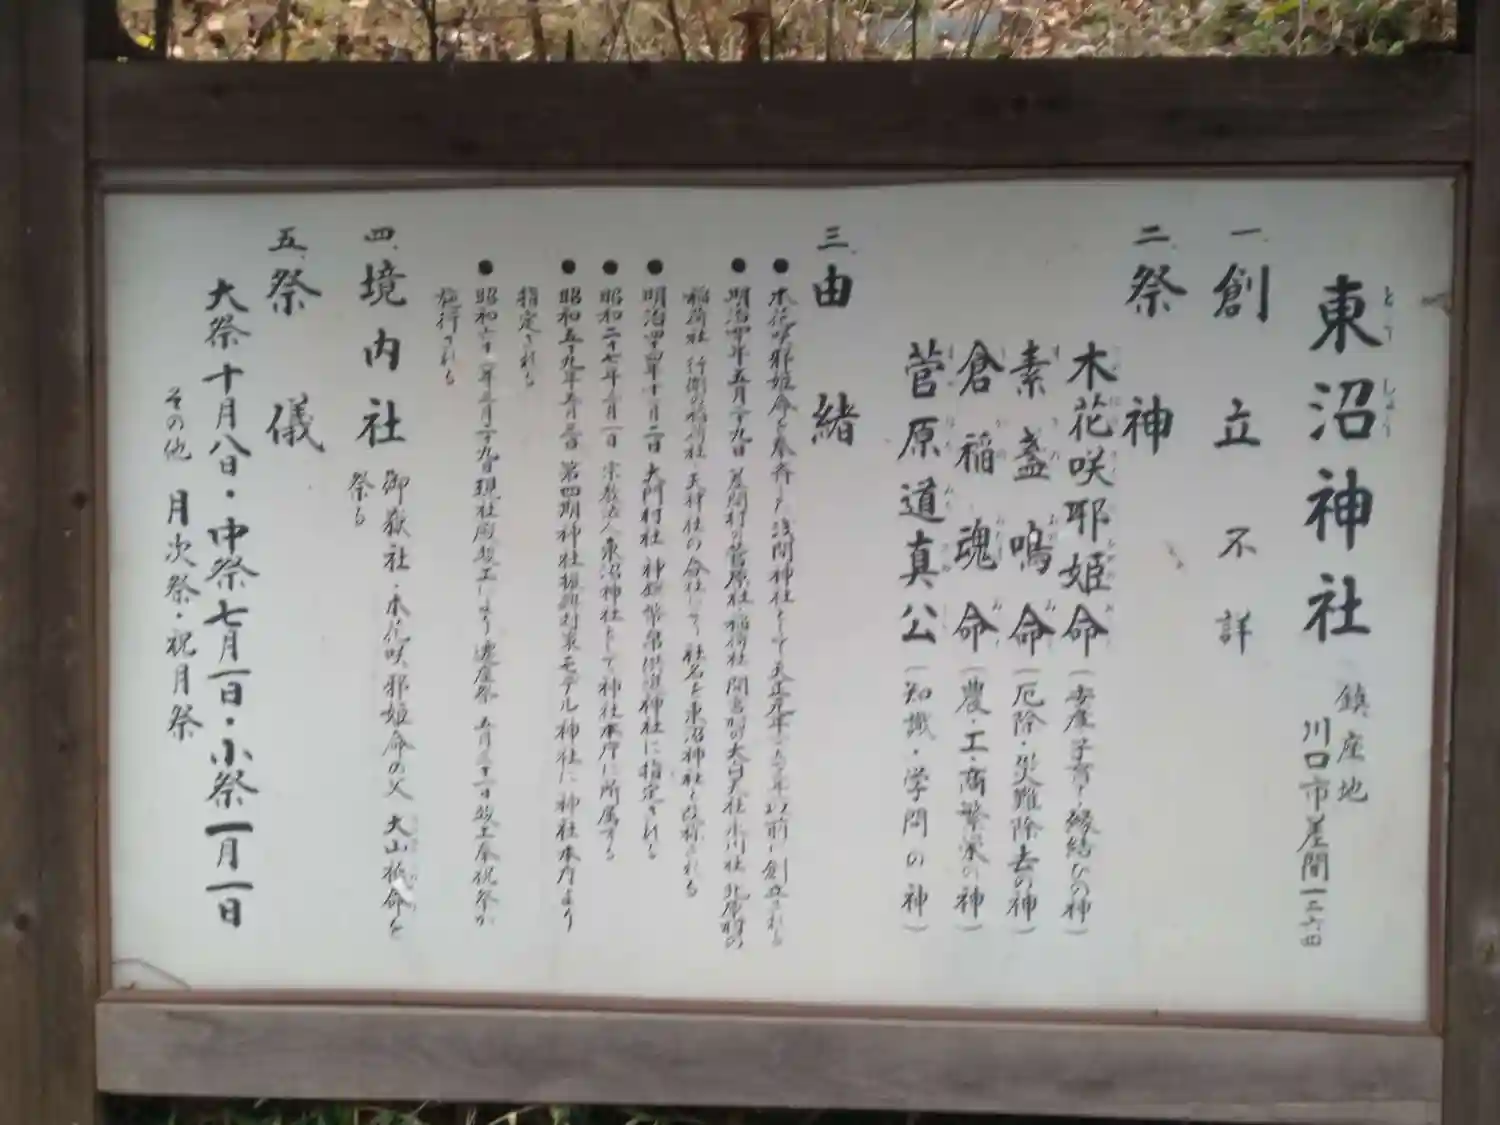 東沼神社
とうしょう
鎮座地
川口市差間
一、創立不詳
二、祭神
木花咲耶姫命(安産子育・縁結びの神)
素盞嗚命(厄除・災難除去の神)
倉稲魂命(農・工・商繁栄の神)
菅原道真公(知識・学問の神)
三、由緒
●木花咲耶姫命を奉斎した浅間神社として天正元年 以前に創立される
●明治四十年五月二十九日 差間村の菅原社・稲荷社 大白天社 の
稲荷社 行衛の稲荷社 天神社の合社にて 社名を東沼神社と改称される
●明治四十四年十一月二日 大門村社 神饌幣帛供進神社に指定される
●昭和二十七年 宗教法人東沼神社として神社本庁に所属する
●昭和五十九年 第四期神社振興対策モデル神社に神社本庁より
指定される
●昭和六十二年五月二十九日現社殿竣工により遷座祭 五月三十一日竣工奉祝祭が
施行される
四、境内社 御嶽社・木花咲耶姫命の父 大山祇命を
祭る
五、祭儀
大祭十月八日・中祭七月一日・小祭一月一日
その他 月次祭・祝月祭